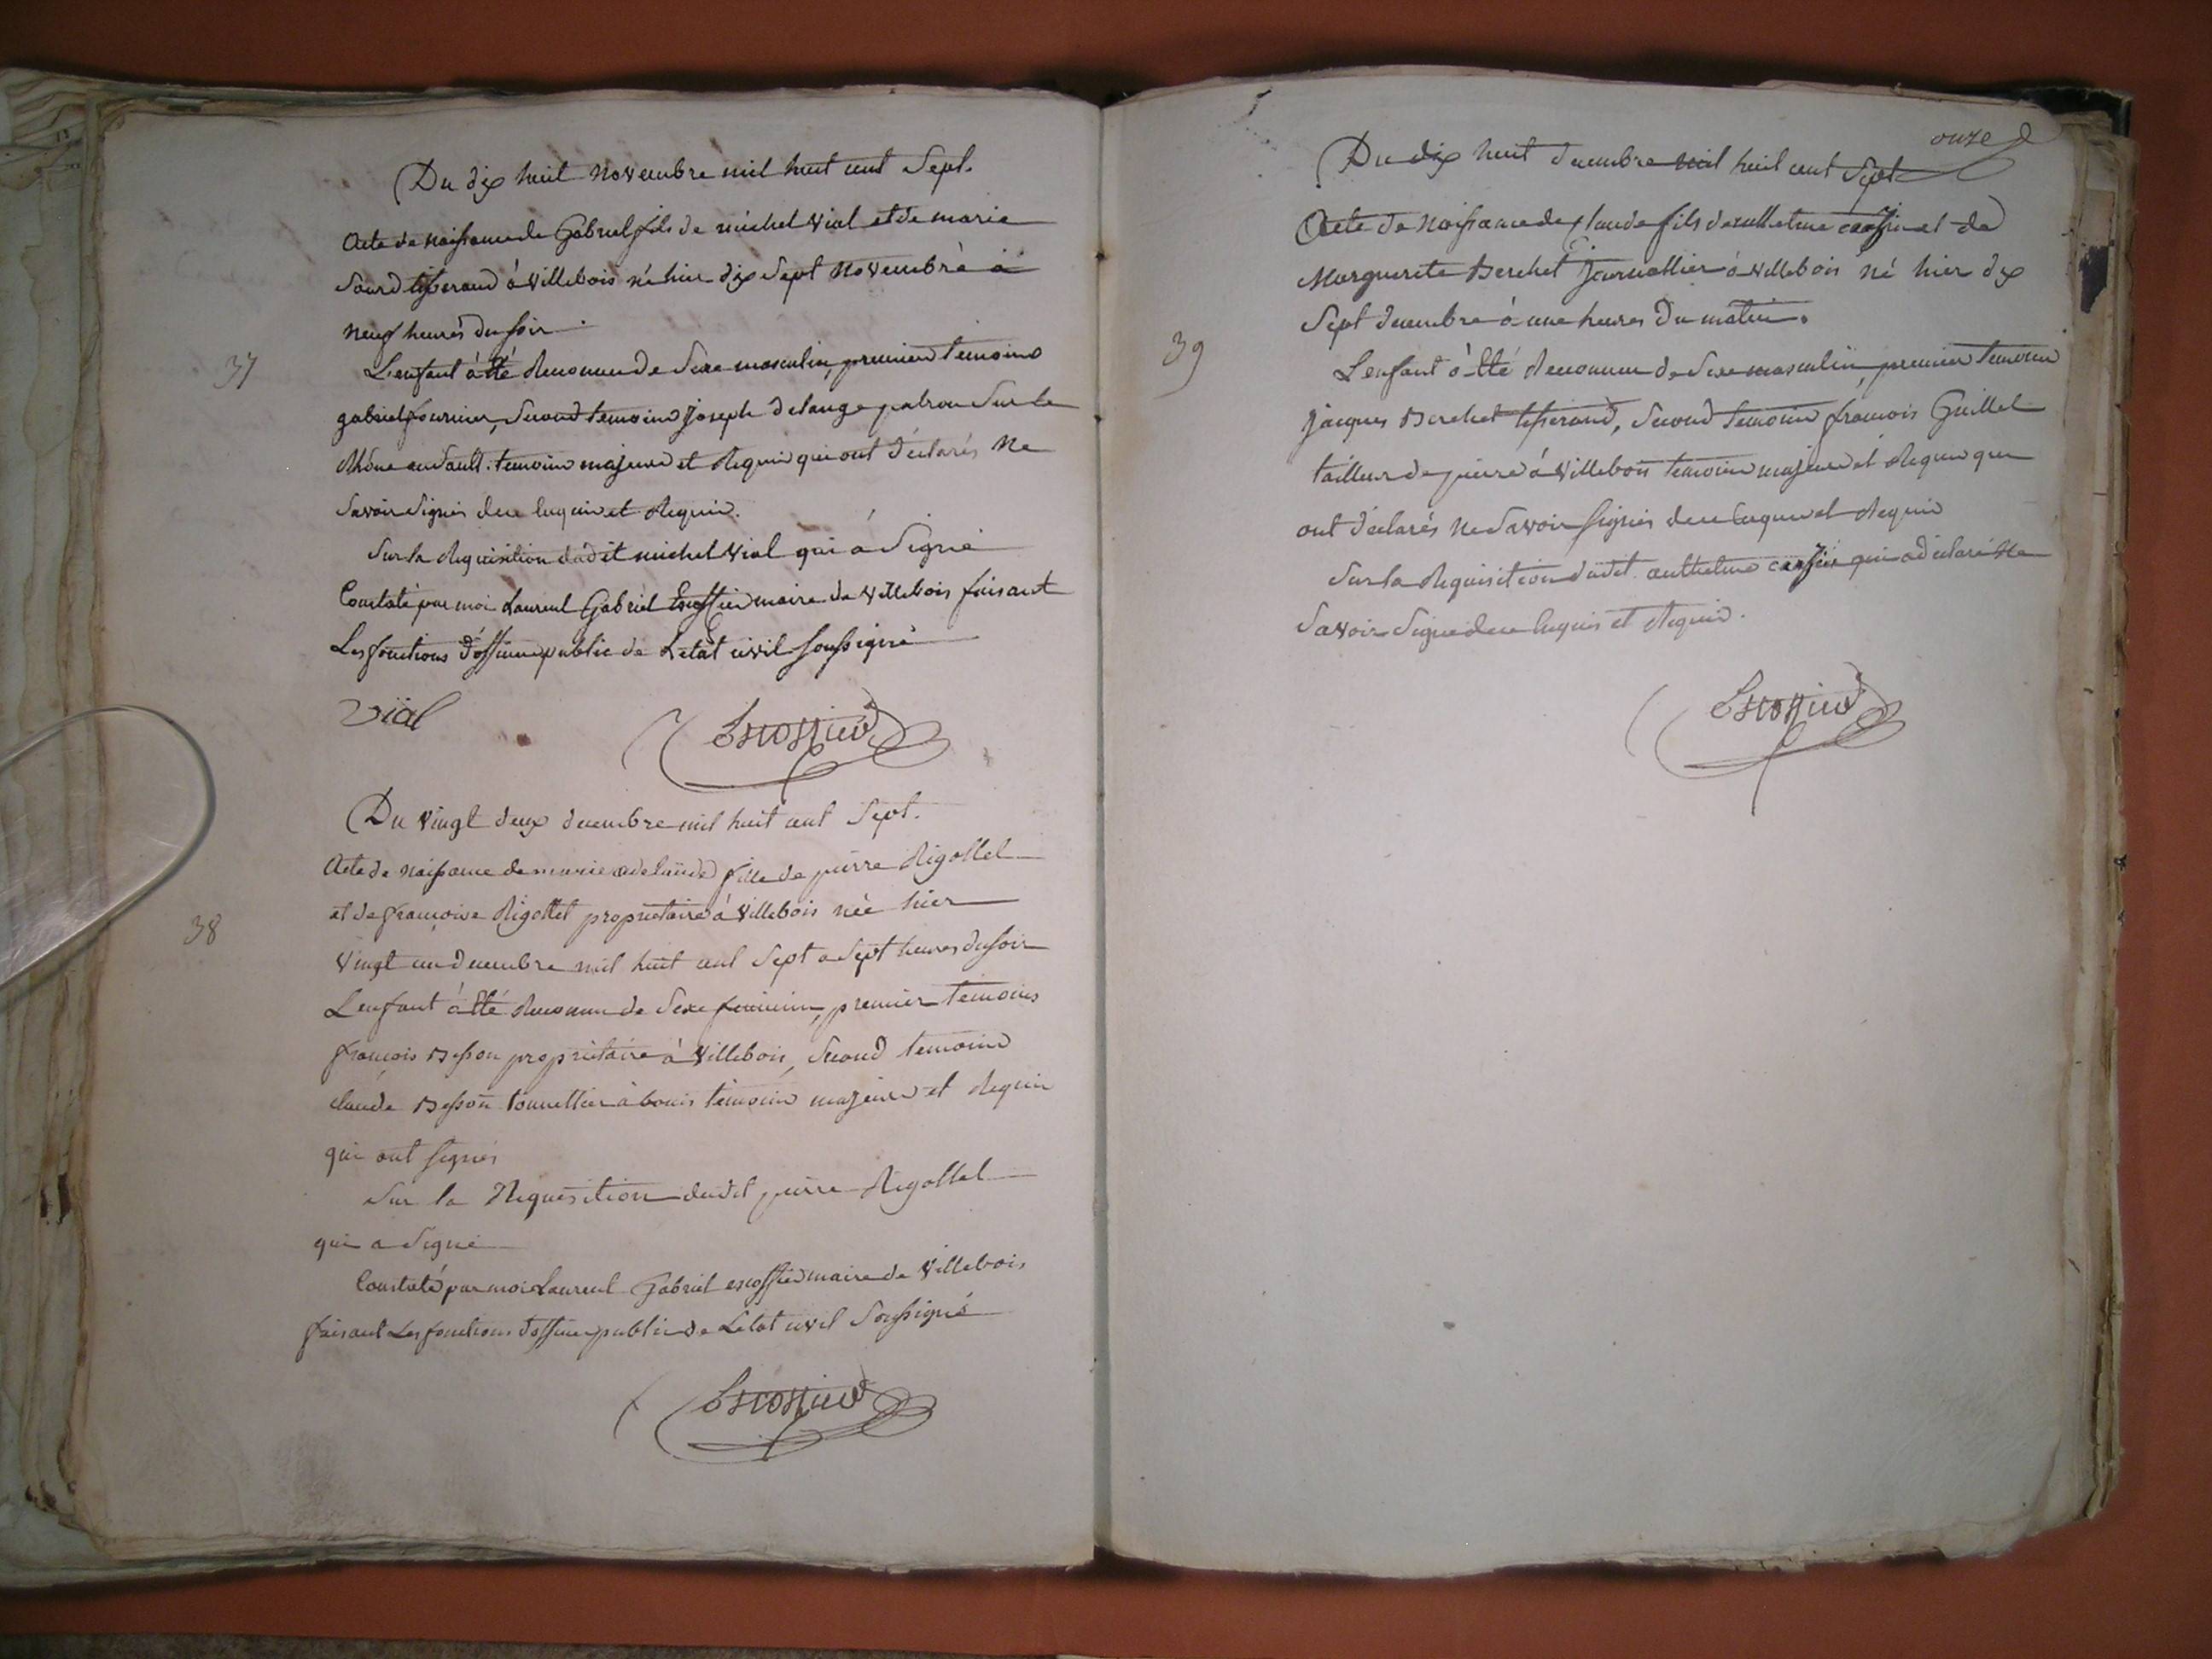 Du dix huit novembre mil huit cent Sept.
Acte de naissance de Gabriel fils de michel Vial et de marie
Sourd tisserand à Villebois né hier dix Sept novembre à
neuf heures du soir
37
L'enfant à été Reconnu de Sexe masculin, premier temoins
gabriel fournier, Second temoins joseph delange patron Sur le
Rhône au Sault. temoins majeurs et Requis qui ont déclarés ne
Savoir Signés de ce enquis et Requis.
Sur la Requisition dudit michel Vial qui à Signé
Constaté par moi Laurent Gabriel Escoffier maire de Villebois faisant
Les fonctions d'officier public de L'etat civil soussigné
vial
Escoffier
Du vingt deux decembre mil huit cent Sept.
Acte de naissance de marie adelaïde fille de pierre Rigottet
et de françoise Rigottet proprietaire à Villebois née hier
38
Vingt un decembre mil huit cent Sept a Sept heures du soir
L'enfant à été Reconnu de Sexe feminin, premier temoins
françois Besson proprietaire à Villebois, Second temoins
claude Besson tonnellier à bouis temoins majeurs et Requis
qui ont signés
Sur la Requisition dudit pierre Rigottet
qui a Signé
Constaté par moi Laurent Gabriel escoffier maire de Villebois
faisant Les fonctions d'officier public de L'etat civil Soussigné
Escoffier
onze
Du dix huit decembre mil huit cent Sept
Acte de Naissance de Claude fils de anthelme et de
Marguerite Berchet journallier à Villebois né hier dix
Sept decembre à une heures du matin.
39
L'enfant à été Reconnu de Sexe masculin, premier temoin
jacques Berchet tisserand, Second temoin françois Guillet
tailleur de pierre à Villebois temoins majeurs et Requis qui
ont déclarés ne Savoir signés de ce enquis et Requis
Sur la Requisition dudit anthelme qui a déclaré Ne
Savoir Signé de ce enquis et Requis.
Escoffier